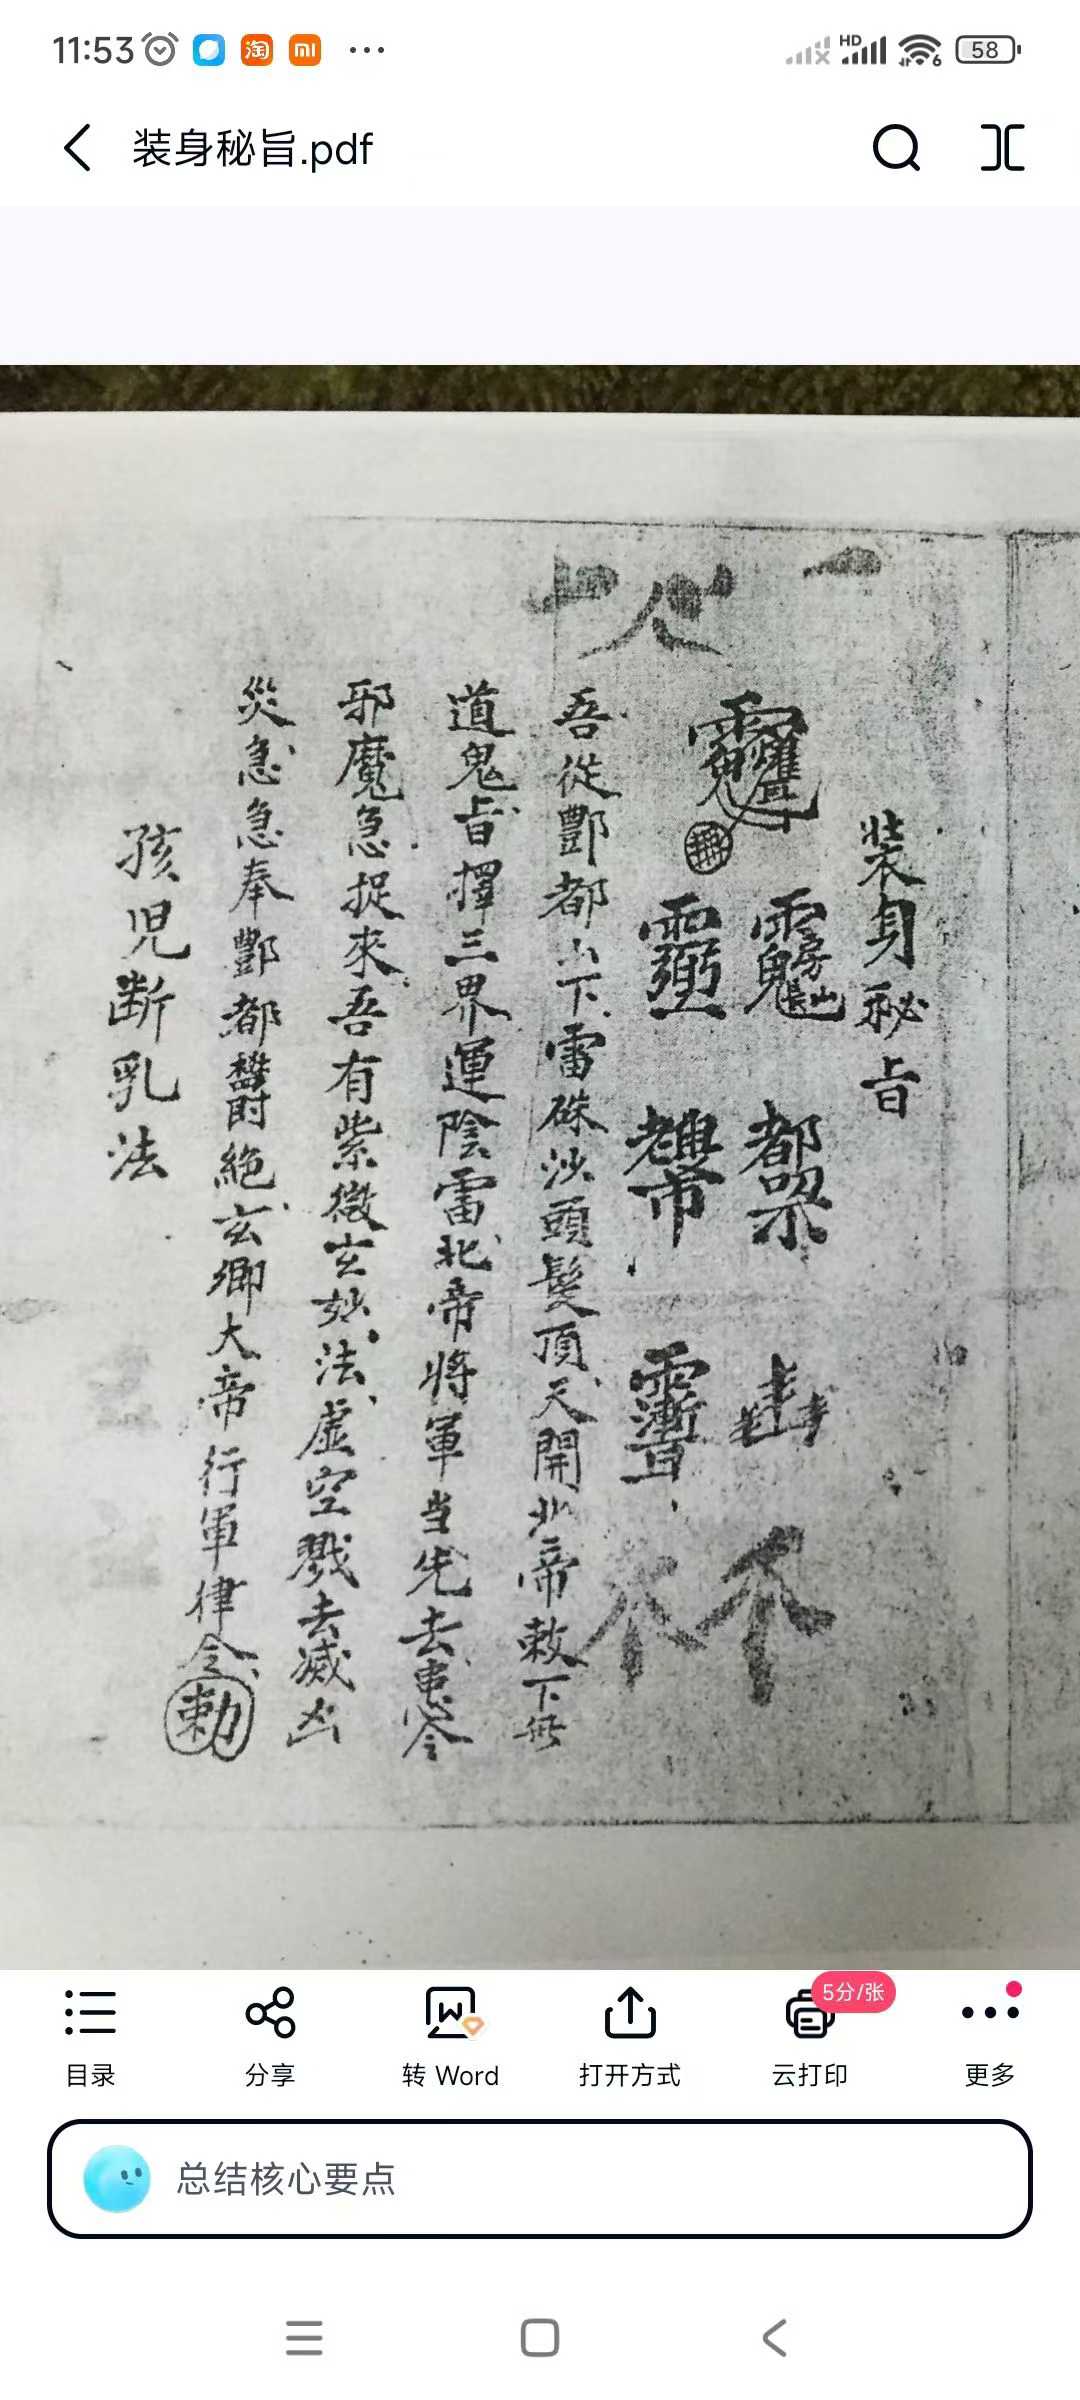 11:53
HD
6
58
装身秘旨.pdf
装身秘旨
吾從酆都山下雷硃沙頭髮頂天開北帝敕下
道鬼旨擇三界運陰雷北帝將軍当先去
邪魔急捉來吾有紫微玄妙法虛空戮去滅凶
災急急奉酆都絕玄卿大帝行軍律令勅
孩児断乳法
目录
分享
转 Word
打开方式
5分/张
云打印
更多
总结核心要点